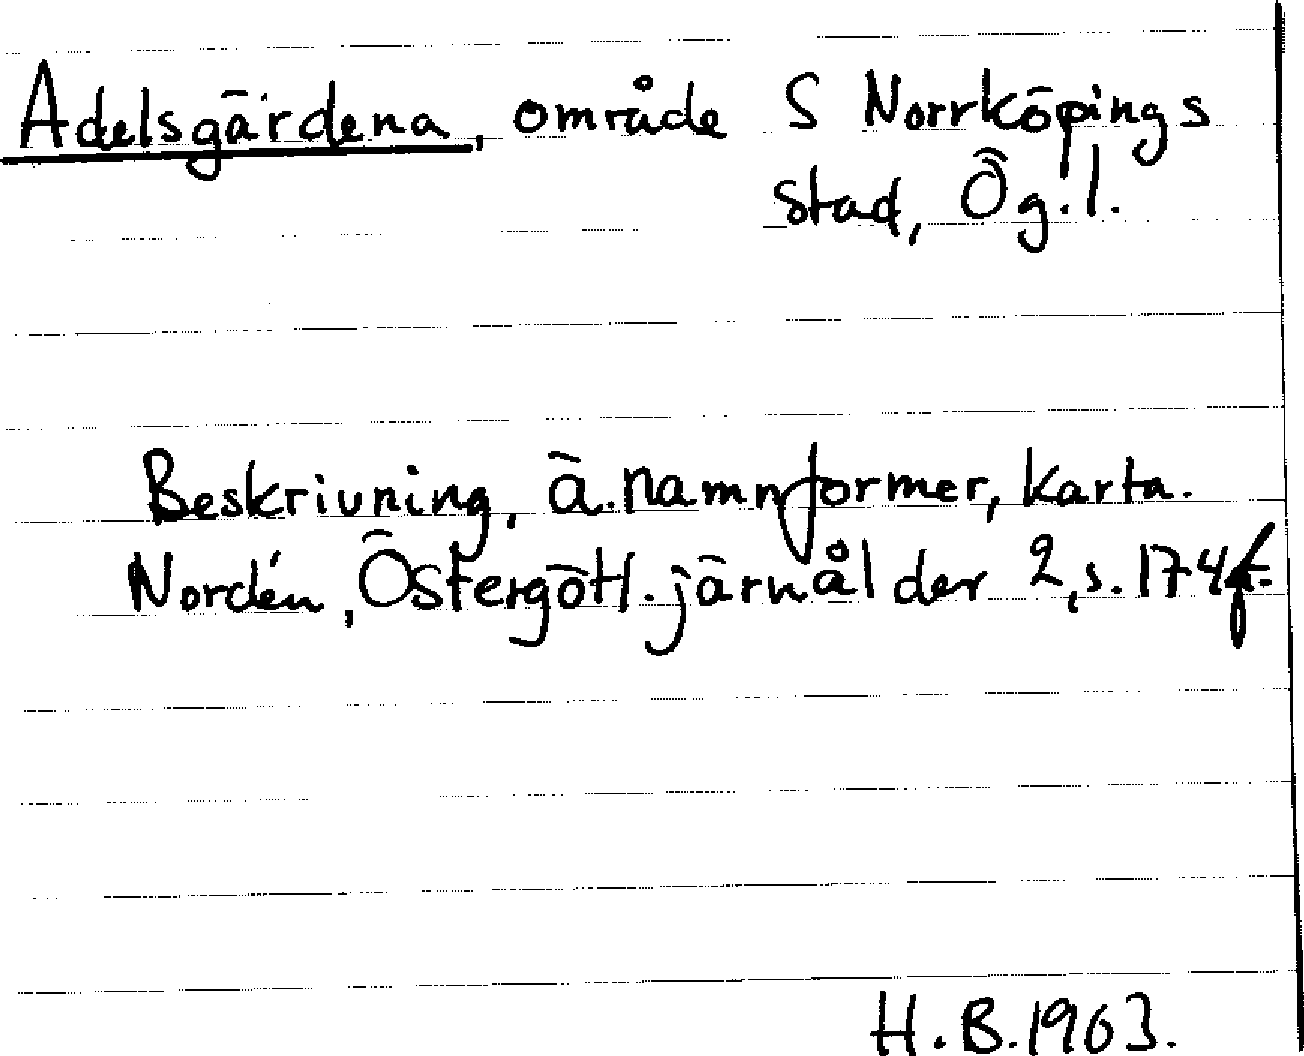 Adelsgärdena, område S Norrköpings
stad, Ög.l.
Beskrivning, ä. namnformer, karta.
Nordén, Östergötl. järnålder 2, s. 174f.
H.B. 1963.